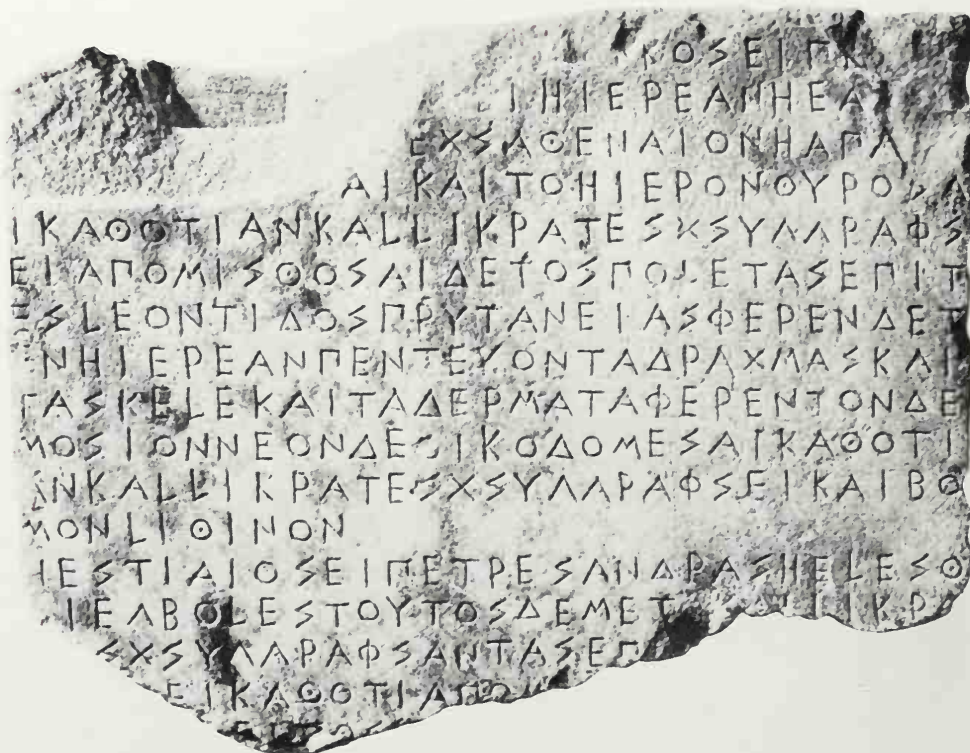 ΚΟΣΕΙΠΕ
ΙΗΙΕΡΕΑΝΗΕΑ
ΕΧΣΑΘΕΝΑΙΟΝΗΑΠΑ
ΑΙΚΑΙΤΟΗΙΕΡΟΝΘΥΡΟΣΑ
ΙΚΑΘΟΤΙΑΝΚΑΛΛΙΚΡΑΤΕΣΧΣΥΓΓΡΑΦΣ
ΕΙΑΠΟΜΙΣΘΟΣΑΙΔΕΤΟΣΠΟΛΕΤΑΣΕΠΙΤ
ΕΣΛΕΟΝΤΙΔΟΣΠΡΥΤΑΝΕΙΑΣΦΕΡΕΝΔΕΤ
ΝΗΙΕΡΕΑΝΠΕΝΤΕΚΟΝΤΑΔΡΑΧΜΑΣΚΑΙ
ΤΑΣΚΕΛΕΚΑΙΤΑΔΕΡΜΑΤΑΦΕΡΕΝΤΟΝΔΕ
ΜΟΣΙΟΝΝΕΟΝΔΕΟΙΚΟΔΟΜΕΣΑΙΚΑΘΟΤΙ
ΑΝΚΑΛΛΙΚΡΑΤΕΣΧΣΥΓΓΡΑΦΣΕΙΚΑΙΒΟ
ΜΟΝΛΙΘΙΝΟΝ
ΗΕΣΤΙΑΙΟΣΕΙΠΕΤΡΕΣΑΝΔΡΑΣΗΕΛΕΣΘ
ΙΕΓΒΟΛΕΣΤΟΥΤΟΣΔΕΜΕΤ ΛΛΙΚΡΑ
ΣΧΣΥΓΓΡΑΦΣΑΝΤΑΣΕΠ
ΕΙΚΑΘΟΤΙΑΠΟ
ΕΙΤΟΣ